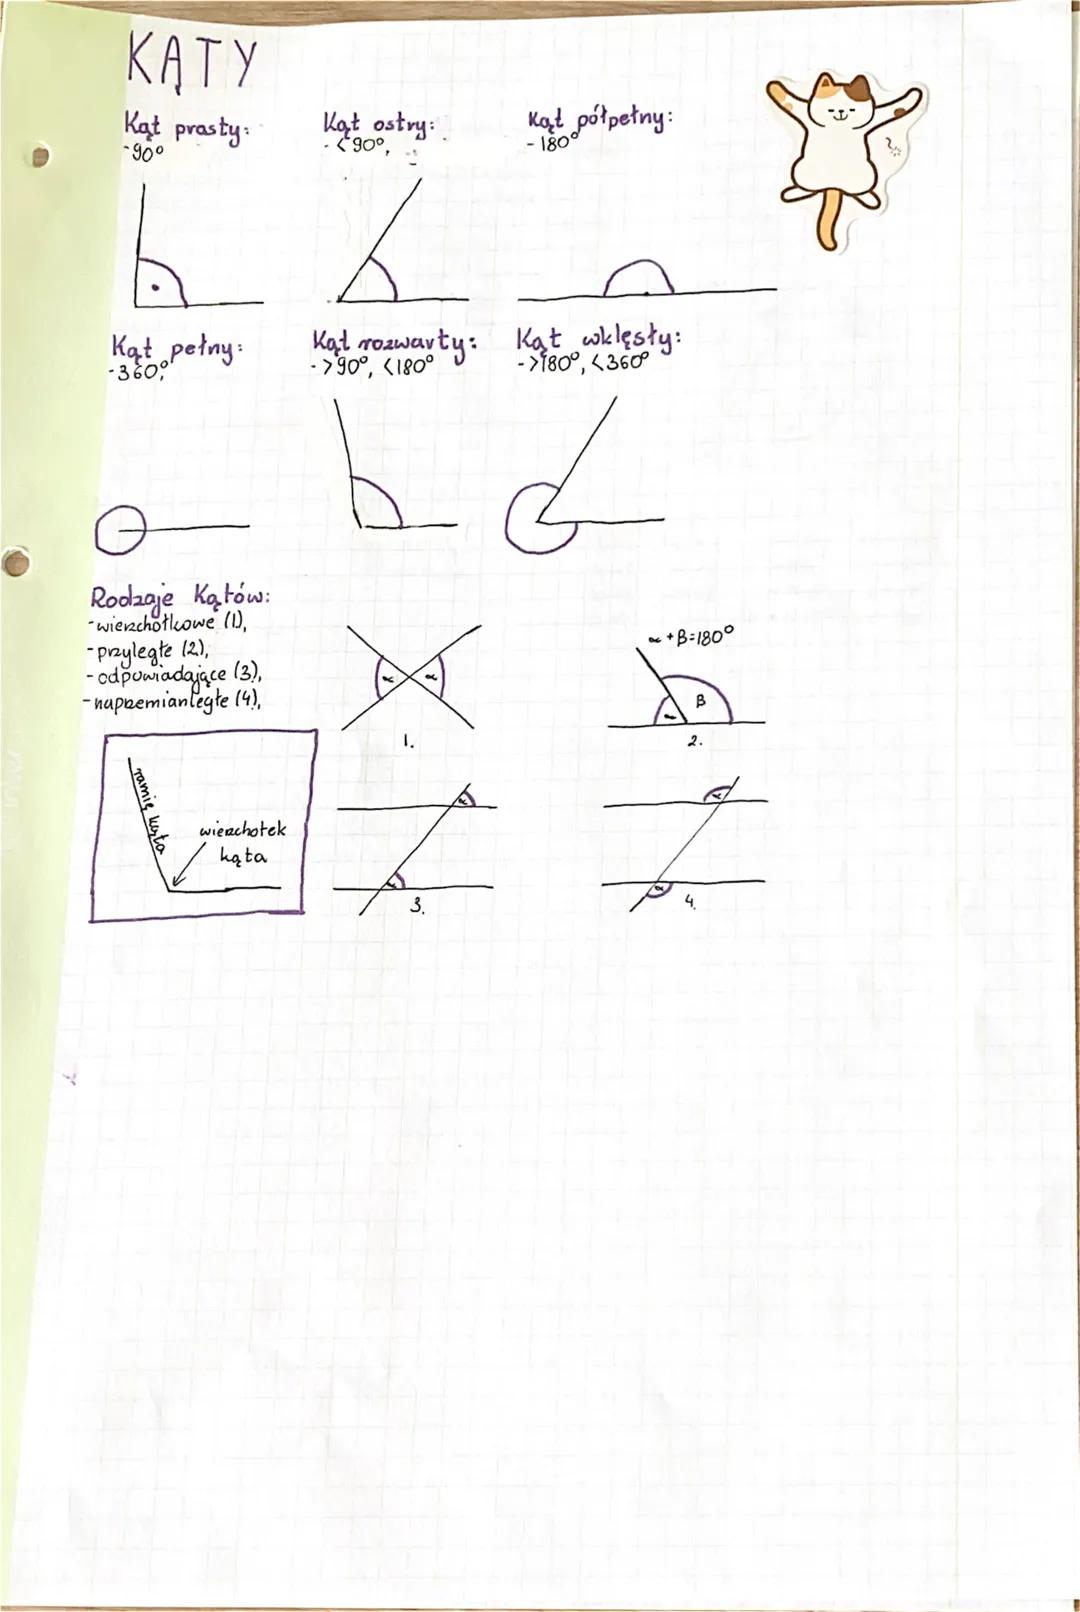 KĄTY
Kąt prosty:
-90°
Kąt ostry:
-<90°,
Kąt półpełny:
-180°
Kąt pełny:
-360°,
Kąt rozwarty:
->90°, <180°
Kąt wklęsły:
->180°, <360°
Rodzaje kątów:
-wierzchołkowe (1),
-przyległe (2),
-odpowiadające (3),
-naprzemianległe (4),
α α
1.
α+B=180°
α B
2.
ramię kąta
wierzchołek
kąta
α
α
3.
α
α
4.